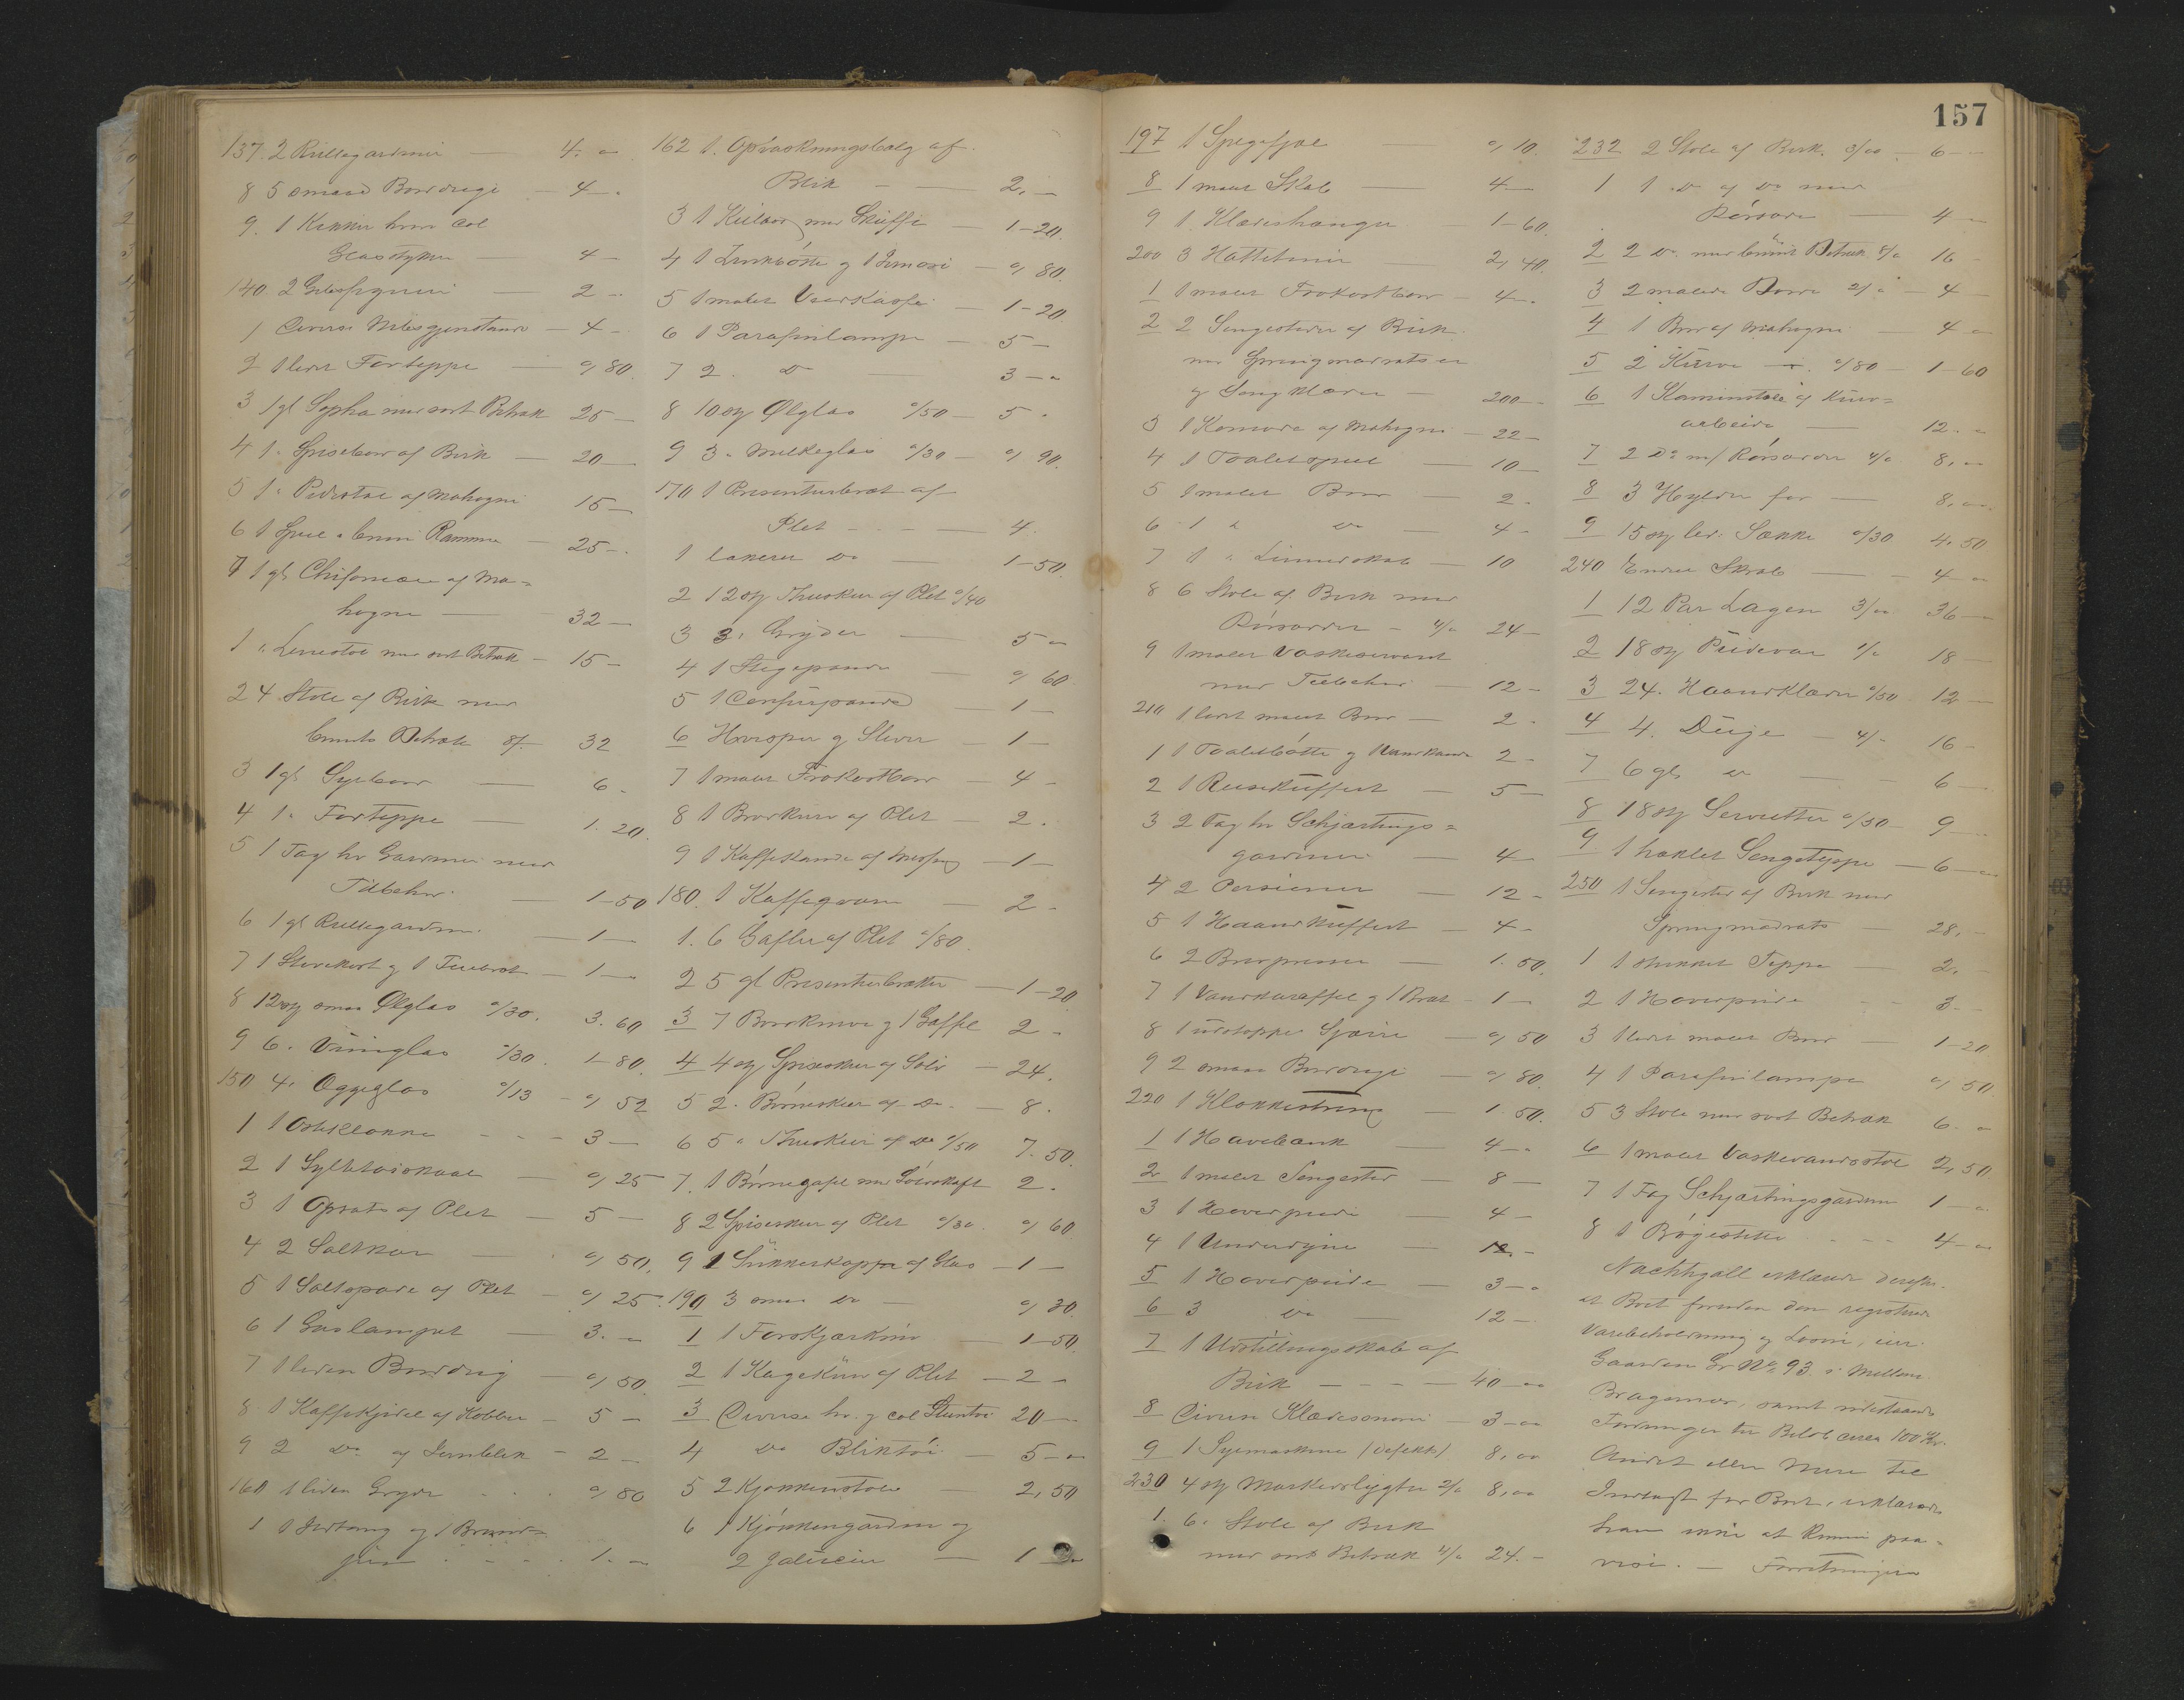 137. 2 Rullegardiner — 4. "
8 5 smaa Bordduge — 4 —
9. 1 Kanne hvor col
Glasstykker — 4 —
140. 2 Gibsfigurer — 2 —
1 Diverse Nipsgjenstande — 4 —
2 1 lidet Forteppe — " 80
3 1 gl Sopha med sort Betræk 25 —
4 1. Spisebord af Birk — 20 —
5 1 " Pidestal af Mahogni 15 —
6 1 Speil i brun Ramme — 25 —
7 1 gl. Chifoniere af Ma=
hogni — 32 —
1 " Lenestol med sort Betræk — 15 —
2 4 Stole af Birk med
brunt Betræk 8/- 32
3 1 gl Sybord — 6 —
4 1 " Forteppe — 1. 20
5 1 Fag hv Gardiner med
Tilbehør — 1 — 50
6 1 gl Rullegardin — 1 —
7 1 Støvekost og 1 — 1 —
8 12 stk smaa Ølglas "/30. 3. 60
9 6. Vinglas "/30. 1 — 80
150 4. Æggeglas "/13 — " 52
1 1 Osteklokke — 3 —
2 1 Syltetøiskaal — " 25
3 1 Opsats af Plet — 5 —
4 2 Saltkar " 50.
5 1 Saltspade af Plet — " 25
6 1 Gaslampet — 3. —
7 1 liden Borddug — " 50
8 1 Kaffekjedel af Kobber — 5 —
9 2 Do af Jernblik — 2 —
160 1 liden Gryde " 80
1 1 Ildtang og 1 Brand=
jern 1. —
162 1. Opvaskningsbalg af
Blik — 2. —
3 1 Kulbox med Skuffe — 1 — 20.
4 1 Zinkbøtte og 1 — " 80
5 1 malet Vedkasse — 1 — 20
6 1 Parafinlampe — 5 —
7 2 Do — 3 — "
8 10 stk Ølglas "/50 — 5 "
9 3 " Melkeglas "/30 — " 90.
170 1 Presenterbræt af
Plet — 4.
1 1 lakeret Do — 1 — 50.
2 12 stk Theskeer af Plet "/40
3 3. Gryder — 5 "
4 1 Stegepande — " 60
5 1 — 1 —
6 Hvisper og Slever — 1 —
7 1 malet Frokostbord — 4 —
8 1 Brødkurv af Plet — 2.
9 1 Kaffekande af Messing — 1 —
180. 1 Kaffekværn — 2 —
1. 6 Gafler af Plet "/80.
2 5 gl Presenterbrætter — 1 — 20
3 7 Bordknive og 1 Gaffel 2 —
4 4 stk Spiseskeer af Sølv — 24.
5 2. Børneskeer af Do. — 8.
6 5 " Theskeer af Do 1/50 7. 50.
7. 1 Børnegafel med Sølvskaft 2.
8 2 Spiseskeer af Plet "/30. " 60
9 1 Sukkerkoppe af Glas — 1 —
190 3 smaa Do — " 30.
1 1 Forskjærkniv — 1 — 50.
2 1 Kagekurv af Plet — 2 —
3 Diverse hv. og col Stentøi 20 —
4 Do Bliktøi — 5 — "
5 2 Kjøkkenstole — 2, 50
6 1 Kjøkkengardin og
2 — 1 —
157
197 1 Spegefjæl — " 10.
8 1 malet Skab — 4 —
9 1. Klædeshænger — 1 — 60.
200 3 — 2, 40.
1 1 malet Frokostbord — 4 —
2 2 Sengesteder af Birk
med Springmadratser
og Sengklæder — 200 —
3 1 Komode af Mahogni — 22 —
4 1 Toaletspeil — 10 —
5 1 malet Bord — 2.
6 1 " Do — 4 —
7 1 " Linnedskab — 10
8 6 Stole af Birk med
Rørsæder — 4/" 24 —
9 1 malet Vaskeservant
med Tilbehør — 12 —
210 1 lidet malet Bord — 2 —
1 1 Toaletbøtte og Vandkande 2 —
2 1 Reisekuffert — 5 —
3 2 Fag hv Schjærtings=
gardiner — 4 —
4 2 Persienner — 12 —
5 1 Haandkuffert — 4 —
6 2 — 1. 50.
7 1 Vandkaraffel og 1 Bræt — 1 —
8 1 udstoppet — " 50
9 2 smaa Bordduge — " 80.
220 1 Klokkestreng — 1 50.
1 1 Havebænk — 4 —
2 1 malet Sengested — 8 —
3 1 Hovedpude — 4 —
4 1 Underdyne — 12. —
5 1 Hovedpude — 3 — "
6 3 Do — 12 —
7 1 Udstillingsskab af
Birk — 40 — "
8 Divers — 3 — "
9 1 Symaskine (defekt) 8, "
230 4 stk Markedslygter 2/" 8, "
1. 6. Stole af Birk
med sort Betræk 4/" 24. —
232 2 Stole af Birk. 3/" — 6 —
1 1 Do af Do med
Rørsæde — 4 "
2 2 Do. med brunt Betræk 8/" 16 —
3 2 malede Borde 2/" — 4 —
4 1 Bord af Mahogni — 4 "
5 2 Kurve — "/80 — 1 — 60
6 1 Kaminstol af Kurv=
arbeide — 12. "
7 2 Do m/ Rørsæder 4/" 8, "
8 3 Hylder for — 8, "
9 15 stk Sække "/30 4. 50
240 Endel Skrab — 4 "
1 12 Par Lagen 3/" 36 — "
2 18 stk Pudevar 1/" 18 —
3 24. Haandklæder "/50 12 —
4 4. Duge — 4/" 16 —
7 6 gl Do — 6 —
8 18 stk Servietter "/50 — 9 —
9 1 hæklet Sengeteppe — 6 — "
250 1 Sengested af Birk med
Springmadrats — 28, —
1 1 strikket Teppe — 2. —
2 1 Hovedpude — 3. —
3 1 lidet malet Bord — 1 — 20
4 1 Parafinlampe " 50
5 3 Stole med sort Betræk 6. "
6 1 malet Vaskevandsstol 2, 50
7 1 Fag Schjærtingsgardiner 1 — "
8 1 — 4 — "
Nachtigall erklærede derefter
at Boet foruden den registrerede
Varebeholdning og Løsøre, eier
Gaarden Gr No. 93 i Mellem
Bragernes, samt udestaaende
Fordringer til Beløb circa 100 Kr.
Andet eller Mere til
Indtægt for Boet, erklærede
han ikke at kunne paa=
vise. — Forretningen